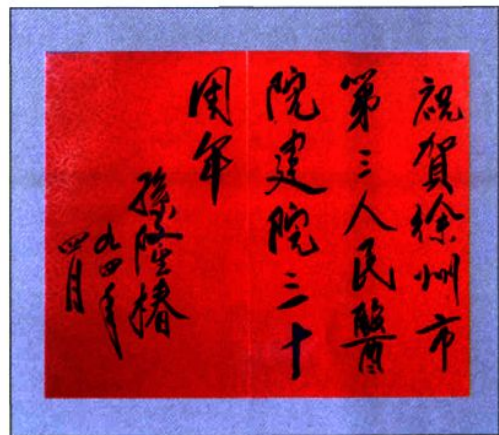 祝賀徐州市
第三人民醫
院建院三十
周年
孫隆椿
九四年
四月